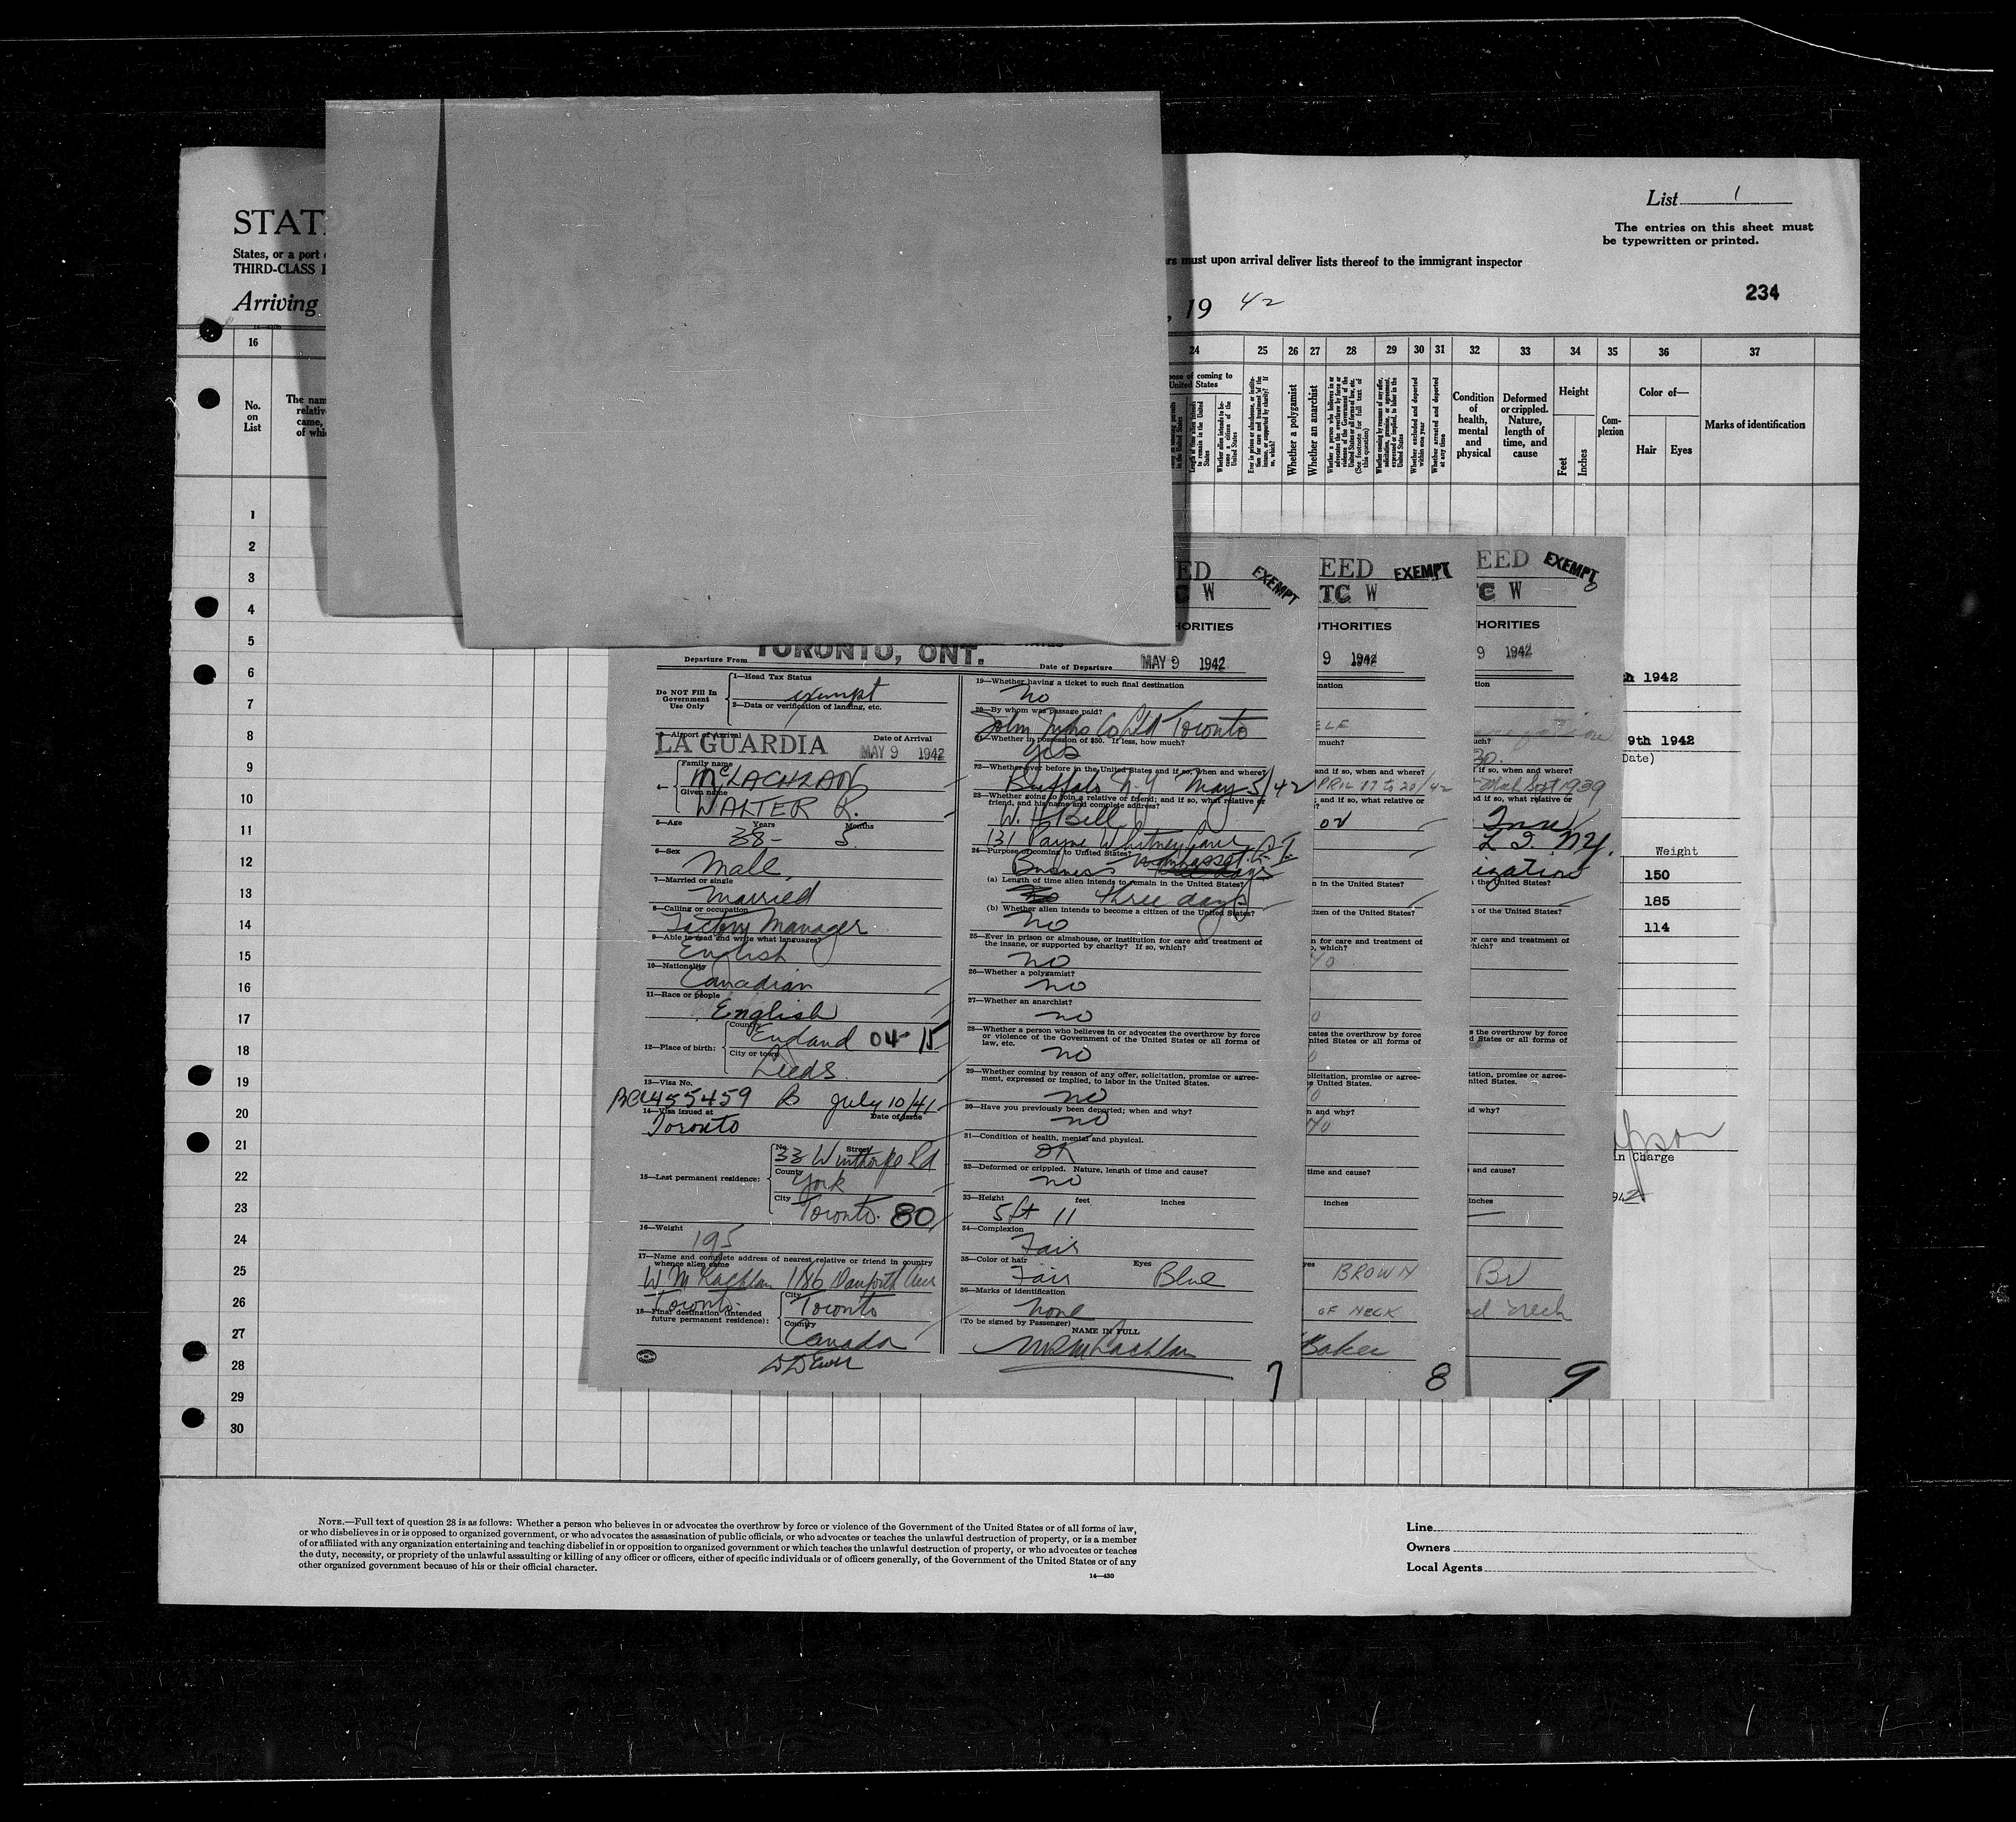 List 1
The entries on this sheet must
be typewritten or printed.
STAT
States, or a port
THIRD-CLASS
must upon arrival deliver lists thereof to the immigrant inspector
Arriving
, 19 42
234
16
24 25 26 27 28 29 30 31 32 33 34 35 36 37
No.
on
List
The nam
relativ
came,
of whi
coming to
United States
Whether a polygamist
Whether an anarchist
Condition
of
health,
mental
and
physical
Deformed
or crippled.
Nature,
length of
time, and
cause
Height
Feet
Inches
Com-
plexion
Color of—
Hair Eyes
Marks of identification
1
2
3
4
5
6
7
8
9
10
11
12
13
14
15
16
17
18
19
20
21
22
23
24
25
26
27
28
29
30
TORONTO, ONT.
Departure From
Date of Departure MAY 9 1942
Do NOT Fill In
Government
Use Only
1—Head Tax Status
exempt
2—Data or verification of landing, etc.
3—Airport of Arrival
Date of Arrival
LA GUARDIA MAY 9 1942
4—
Family name
McLACHLAN
Given name
WALTER R.
5—Age Years Months
38 - 5
6—Sex
Male
7—Married or single
Married
8—Calling or occupation
Factory Manager
9—Able to read and write what languages?
English
10—Nationality
Canadian
11—Race or people
English
12—Place of birth:
Country
England 04-15
City or town
Leeds
13—Visa No.
455459 B July 10/41
14—Visa issued at
Date of issue
Toronto
15—Last permanent residence:
No. Street
33 Winthorpe Rd
County
York
City
Toronto. 80
16—Weight
195
17—Name and complete address of nearest relative or friend in country
whence alien came
W McLachlan 1186 Danforth Ave
Toronto.
18—Final destination (intended
future permanent residence):
City
Toronto
Country
Canada
19—Whether having a ticket to such final destination
no
20—By whom was passage paid?
John Inglis Co Ltd Toronto
21—Whether in possession of $50. If less, how much?
yes
22—Whether ever before in the United States and if so, when and where?
Buffalo N.Y May 5/42
23—Whether going to join a relative or friend; and if so, what relative or
friend, and his name and complete address?
W. H Bell
131 Payne Whitney Lane
Manhasset. L.I.
24—Purpose of coming to United States?
Business
(a) Length of time alien intends to remain in the United States?
three days
(b) Whether alien intends to become a citizen of the United States?
no
25—Ever in prison or almshouse, or institution for care and treatment of
the insane, or supported by charity? If so, which?
no
26—Whether a polygamist?
no
27—Whether an anarchist?
no
28—Whether a person who believes in or advocates the overthrow by force
or violence of the Government of the United States or all forms of
law, etc.
no
29—Whether coming by reason of any offer, solicitation, promise or agree-
ment, expressed or implied, to labor in the United States.
no
30—Have you previously been deported; when and why?
no
31—Condition of health, mental and physical.
OK
32—Deformed or crippled. Nature, length of time and cause?
no
33—Height feet inches
5 ft 11
34—Complexion
Fair
35—Color of hair Eyes
Fair Blue
36—Marks of identification
None
(To be signed by Passenger)
NAME IN FULL
WR McLachlan
7
ED EXEMPT
C W
HORITIES
EED EXEMPT
TC W
THORITIES
9 1942
ELF
much?
and if so, when and where?
PRIL 17 to 20/42
; and if so, what relative or
n in the United States?
izen of the United States?
n for care and treatment of
, which?
cates the overthrow by force
nited States or all forms of
olicitation, promise or agree-
e United States.
n and why?
time and cause?
inches
BROWN
OF NECK
Baker
8
EED EXEMPT
W
HORITIES
9 1942
30.
if so, when and where?
Sept 1939
nd if so, what relative or
L I. NY.
ization
the United States?
of the United States?
or care and treatment of
hich?
s the overthrow by force
d States or all forms of
tation, promise or agree-
nited States.
d why?
and cause?
inches
Br
neck
9
1942
9th 1942
Date)
Weight
150
185
114
in Charge
NOTE.—Full text of question 28 is as follows: Whether a person who believes in or advocates the overthrow by force or violence of the Government of the United States or of all forms of law,
or who disbelieves in or is opposed to organized government, or who advocates the assassination of public officials, or who advocates or teaches the unlawful destruction of property, or is a member
of or affiliated with any organization entertaining and teaching disbelief in or opposition to organized government or which teaches the unlawful destruction of property, or who advocates or teaches
the duty, necessity, or propriety of the unlawful assaulting or killing of any officer or officers, either of specific individuals or of officers generally, of the Government of the United States or of any
other organized government because of his or their official character.
14—430
Line
Owners
Local Agents